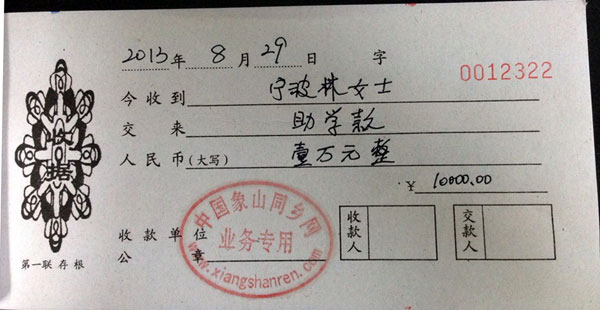 2013年 8 月 29 日 字
0012322
今收到 宁波林女士
交来 助学款
人民币(大写) 壹万元整
¥ 10000.00
收据
收款单位公章
中国象山同乡网
业务专用
www.xiangshanren.com
收款人
交款人
第一联 存根